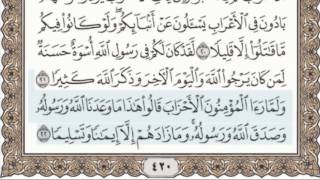 بَادُونَ فِى ٱلْأَعْرَابِ يَسْـَٔلُونَ عَنْ أَنۢبَآئِكُمْ ۖ وَلَوْ كَانُوا۟ فِيكُم
مَّا قَٰتَلُوٓا۟ إِلَّا قَلِيلًا ٢٠ لَّقَدْ كَانَ لَكُمْ فِى رَسُولِ ٱللَّهِ أُسْوَةٌ حَسَنَةٌ
لِّمَن كَانَ يَرْجُوا۟ ٱللَّهَ وَٱلْيَوْمَ ٱلْـَٔاخِرَ وَذَكَرَ ٱللَّهَ كَثِيرًا ٢١
وَلَمَّا رَءَا ٱلْمُؤْمِنُونَ ٱلْأَحْزَابَ قَالُوا۟ هَٰذَا مَا وَعَدَنَا ٱللَّهُ وَرَسُولُهُۥ
وَصَدَقَ ٱللَّهُ وَرَسُولُهُۥ ۚ وَمَا زَادَهُمْ إِلَّآ إِيمَٰنًا وَتَسْلِيمًا ٢٢
٤٢٠